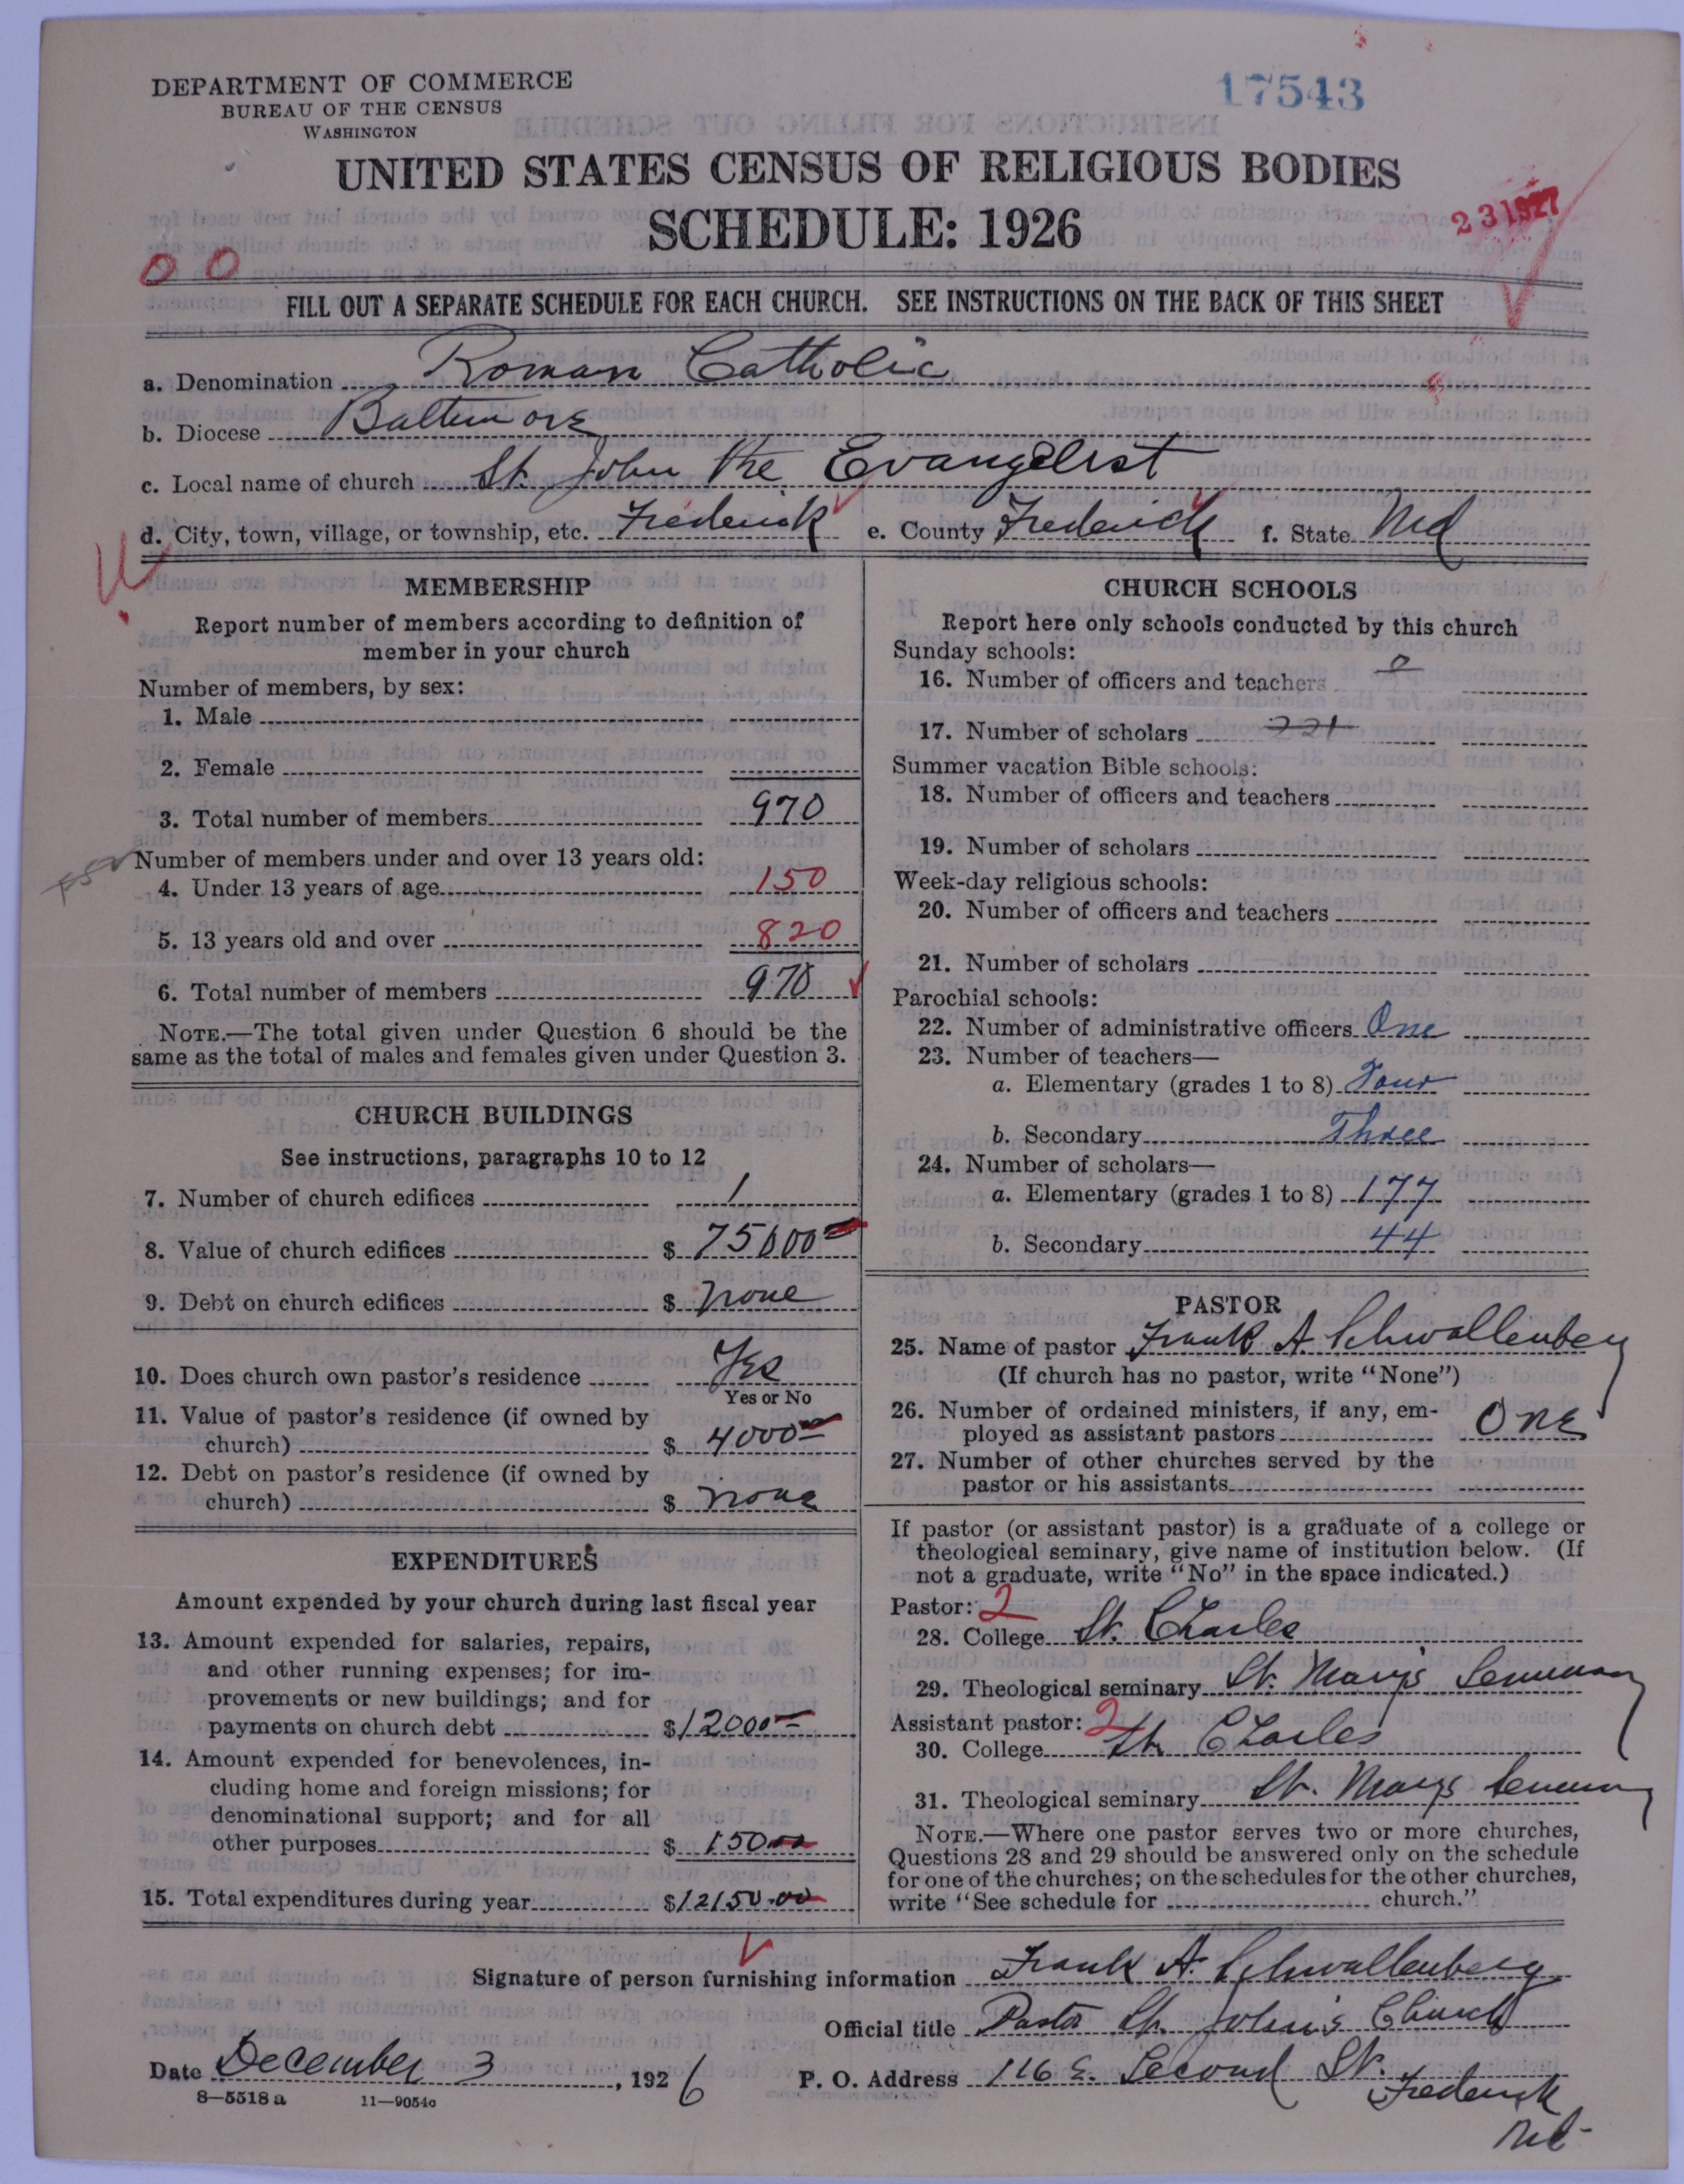 DEPARTMENT OF COMMERCE
BUREAU OF THE CENSUS
WASHINGTON
17543
UNITED STATES CENSUS OF RELIGIOUS BODIES
SCHEDULE: 1926
23 1927
0 0
FILL OUT A SEPARATE SCHEDULE FOR EACH CHURCH. SEE INSTRUCTIONS ON THE BACK OF THIS SHEET
a. Denomination Roman Catholic
b. Diocese Baltimore
c. Local name of church St. John the Evangelist
d. City, town, village, or township, etc. Frederick e. County Frederick f. State Md
MEMBERSHIP
Report number of members according to definition of
member in your church
Number of members, by sex:
1. Male
2. Female
3. Total number of members 970
Number of members under and over 13 years old:
4. Under 13 years of age 150
5. 13 years old and over 820
6. Total number of members 970
NOTE.—The total given under Question 6 should be the
same as the total of males and females given under Question 3.
CHURCH BUILDINGS
See instructions, paragraphs 10 to 12
7. Number of church edifices 1
8. Value of church edifices $ 75000 00
9. Debt on church edifices $ none
10. Does church own pastor's residence Yes
Yes or No
11. Value of pastor's residence (if owned by
church) $ 4000 00
12. Debt on pastor's residence (if owned by
church) $ none
EXPENDITURES
Amount expended by your church during last fiscal year
13. Amount expended for salaries, repairs,
and other running expenses; for im-
provements or new buildings; and for
payments on church debt $12000 00
14. Amount expended for benevolences, in-
cluding home and foreign missions; for
denominational support; and for all
other purposes $ 150 00
15. Total expenditures during year $12150.00
CHURCH SCHOOLS
Report here only schools conducted by this church
Sunday schools:
16. Number of officers and teachers
17. Number of scholars 221
Summer vacation Bible schools:
18. Number of officers and teachers
19. Number of scholars
Week-day religious schools:
20. Number of officers and teachers
21. Number of scholars
Parochial schools:
22. Number of administrative officers One
23. Number of teachers—
a. Elementary (grades 1 to 8) Four
b. Secondary Three
24. Number of scholars—
a. Elementary (grades 1 to 8) 177
b. Secondary 44
PASTOR
25. Name of pastor Frank A Schwallenberg
(If church has no pastor, write "None")
26. Number of ordained ministers, if any, em-
ployed as assistant pastors One
27. Number of other churches served by the
pastor or his assistants
If pastor (or assistant pastor) is a graduate of a college or
theological seminary, give name of institution below. (If
not a graduate, write "No" in the space indicated.)
Pastor: 2
28. College St. Charles
29. Theological seminary St. Mary's Seminary
Assistant pastor: 2
30. College St. Charles
31. Theological seminary St. Marys Seminary
NOTE.—Where one pastor serves two or more churches,
Questions 28 and 29 should be answered only on the schedule
for one of the churches; on the schedules for the other churches,
write "See schedule for church."
Signature of person furnishing information Frank A. Schwallenberg
Official title Pastor St. John's Church
Date December 3, 1926 P. O. Address 116 E. Second St.
Frederick
Md.
8—5518 a 11—9054c